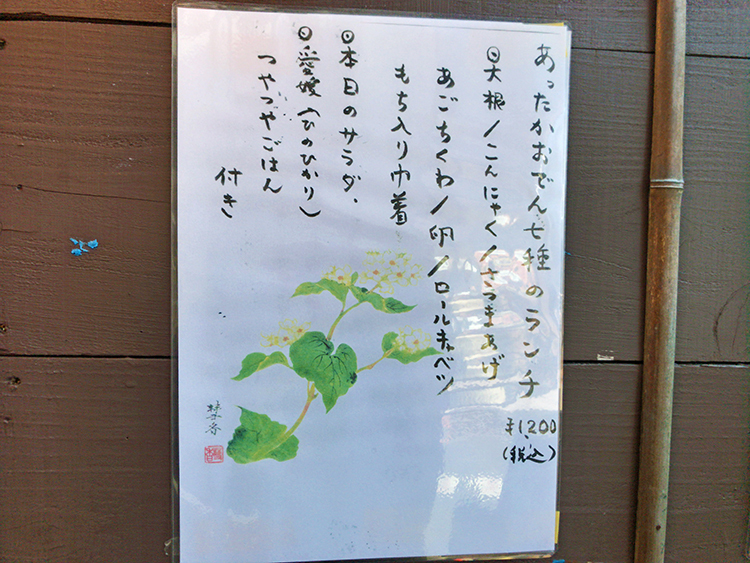 あったかおでん七種のランチ
¥1,200
(税込)
◎大根/こんにゃく/さつまあげ
あごちくわ/卵/ロールキャベツ
もち入り巾着
◎本日のサラダ、
◎愛媛(ひのひかり)
つやつやごはん
付き